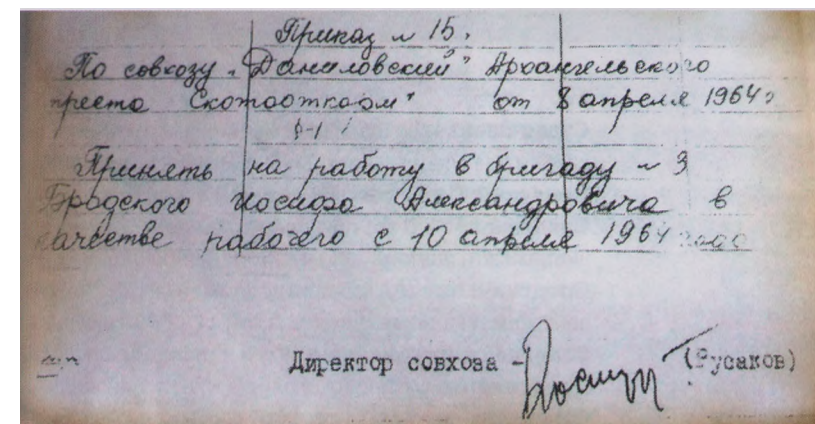 Приказ № 15.
По совхозу „Даниловский" Архангельского
треста Скотооткорм" от 8 апреля 1964г
§-1
Принять на работу в бригаду № 3
Бродского Иосифа Александровича в
качестве рабочего с 10 апреля 1964 года
Директор совхоза - (Русаков)